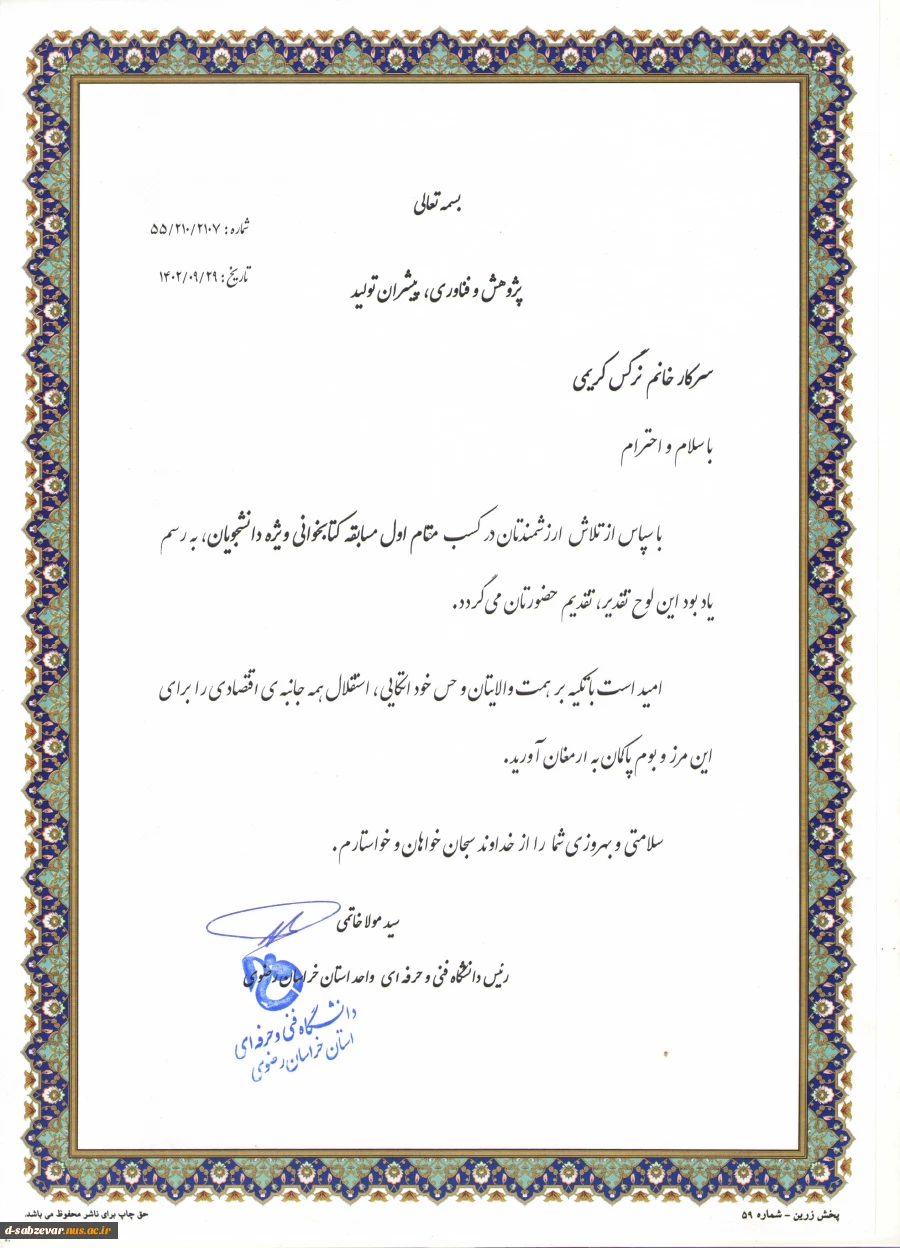 بسمه تعالی
شماره: ۵۵/۲۱۰/۲۱۰۷
تاریخ: ۱۴۰۲/۰۹/۲۹
پژوهش و فناوری، پیشران تولید
سرکار خانم نرگس کریمی
با سلام و احترام
با سپاس از تلاش ارزشمندتان در کسب مقام اول مسابقه کتابخوانی ویژه دانشجویان، به رسم
یاد بود این لوح تقدیر، تقدیم حضورتان می گردد.
امید است با تکیه بر همت والایتان و حس خود اتکایی، استقلال همه جانبه ی اقتصادی را برای
این مرز و بوم پاکمان به ارمغان آورید.
سلامتی و بهروزی شما را از خداوند سبحان خواهان و خواستارم.
سید مولا خاتمی
رئیس دانشگاه فنی و حرفه ای واحد استان خراسان رضوی
دانشگاه فنی و حرفه ای
استان خراسان رضوی
پخش زرین - شماره ۵۹
حق چاپ برای ناشر محفوظ می باشد.
d-sabzevar.nus.ac.ir